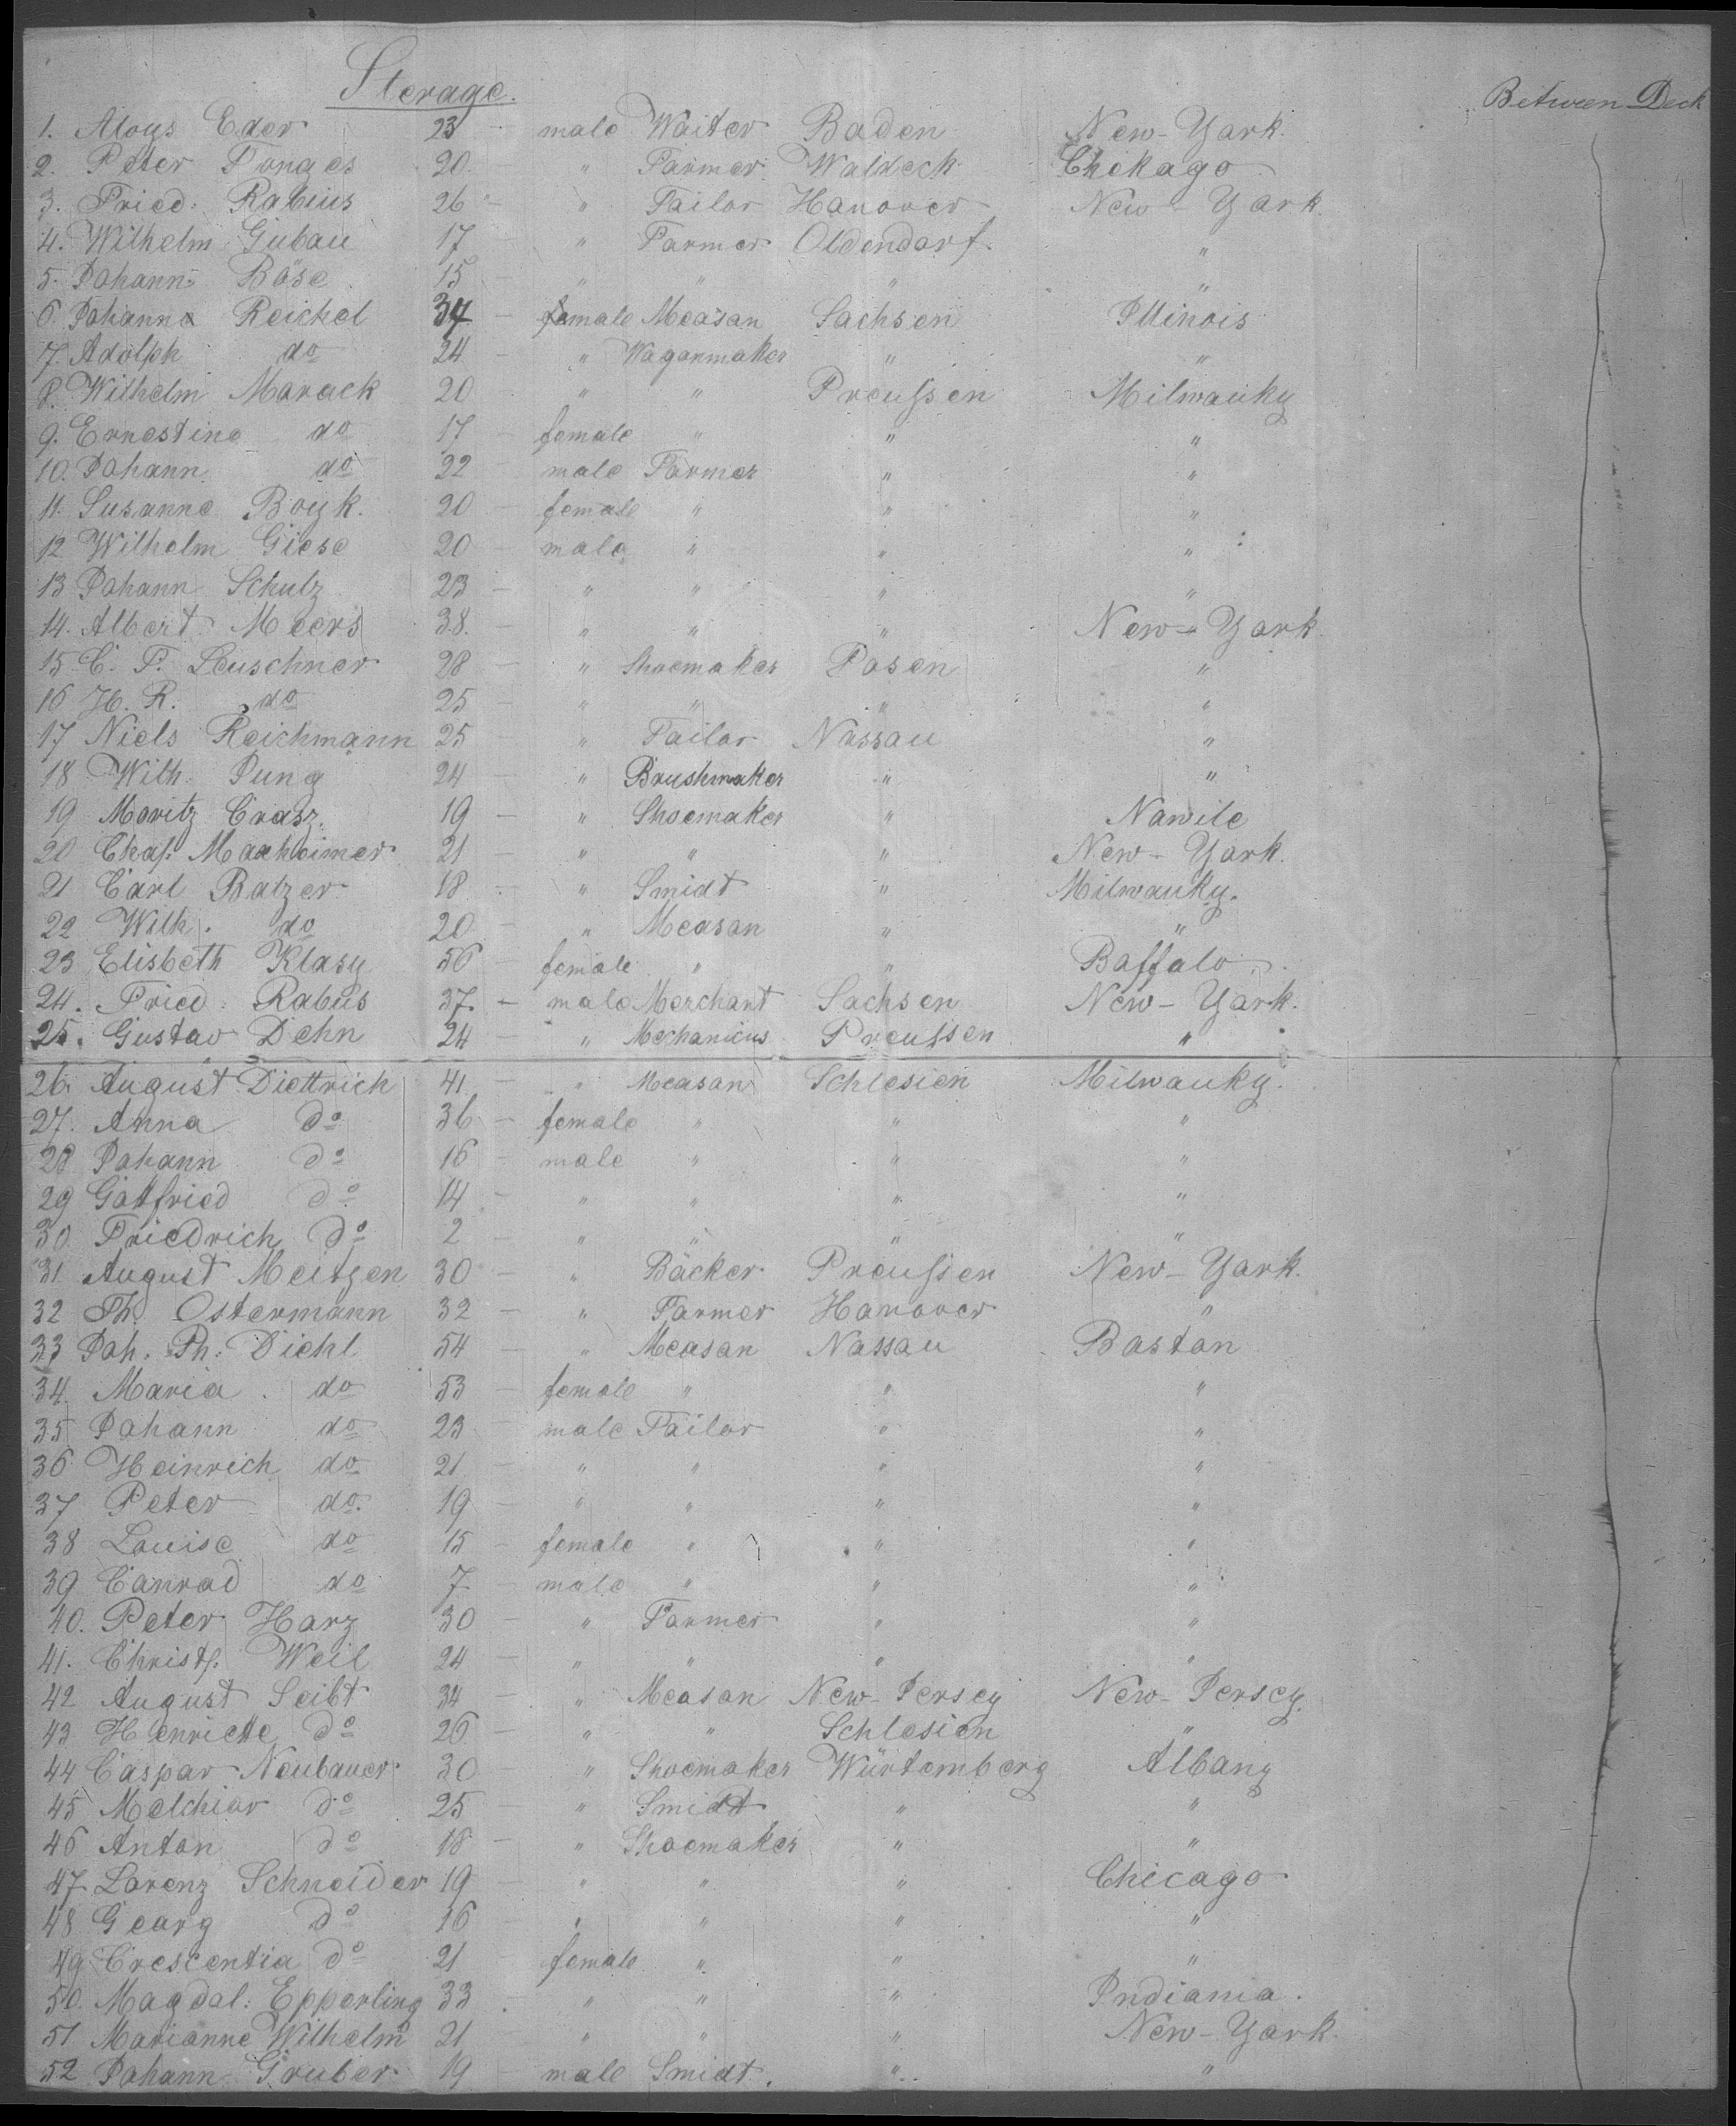 Sterage.
Between Deck
1. Aloys Eder 23 - male Waiter Baden New-York.
2. Peter Tonges 20. - " Farmer Waldeck Chekago
3. Fried: Rabius 26 - " Tailor Hanover New-York.
4. Wilhelm Gubau 17 " Farmer Oldendorf. "
5. Johann Böse 15 - " " " "
6. Johanna Reichel 34 - female Measan Sachsen Illinois
7. Adolph do 24 - " Waganmaker " "
8. Wilhelm Marack 20 - " " Preussen Milwauky
9. Ernestine do 17 - female " " "
10. Johann do 22 male Farmer " "
11. Susanne Boyk. 20 - female " " "
12 Wilhelm Giese 20 - male " " "
13 Johann Schulz 23 - " " " "
14. Albert Meers 38. - " " " New-York.
15 C. F. Leuschner 28 - " Shoemaker Posen "
16 H. R. do 25 " " " "
17 Niels Reichmann 25 - " Tailor Nassau "
18 Wilh. Jung 24 - " Brushmaker " "
19 Moritz Crasz. 19 - " Shoemaker " Nawile
20 Chas. Maxheimer 21 - " " " New-York.
21 Carl Balzer 18 - " Smidt " Milwauky.
22 Wilh. do 20 - " Measan " "
23 Elisbeth Klasy 56 - female " " Baffalo
24. Fried: Rabus 37. - male Merchant Sachsen New-York.
25. Gustav Dehn 24 " Mechanicus Preussen "
26. August Diettrich 41 - " Measan Schlesien Milwauky.
27. Anna do 36 - female " " "
28 Johann do 16 - male " " "
29 Gottfried do 14 - " " " "
30 Friedrich do 2 - " " " "
31 August Meitzen 30 - " Bäcker Preussen New-York.
32 Th. Ostermann 32 - " Farmer Hanover "
33 Joh. Ph. Diehl 54 - " Measan Nassau Bastan
34. Maria do 53 - female " " "
35 Johann do 23 - male Tailor " "
36 Heinrich do 21 - " " " "
37 Peter do. 19 - " " " "
38 Louise do 15 - female " " "
39 Conrad do 7 - male " " "
40. Peter Harz 30 - " Farmer " "
41. Christ. Weil 24 - " " " "
42 August Seibt 34 - " Measan New-Jersey New-Jersey.
43 Henriette do 26 - " " Schlesien "
44 Caspar Neubauer 30 - " Shoemaker Würtemberg Albany
45 Melchior do 25 - " Smidt " "
46 Anton do 18 - " Shoemaker " "
47 Lorenz Schneider 19 - " " " Chicago
48 Georg do 16 - " " " "
49 Crescentia do 21 female " " "
50. Magdal: Epperling 33 . " " " Indiania.
51 Marianne Wilhelm 21 " " " New-York.
52 Johann Gruber 19 male Smidt. " "